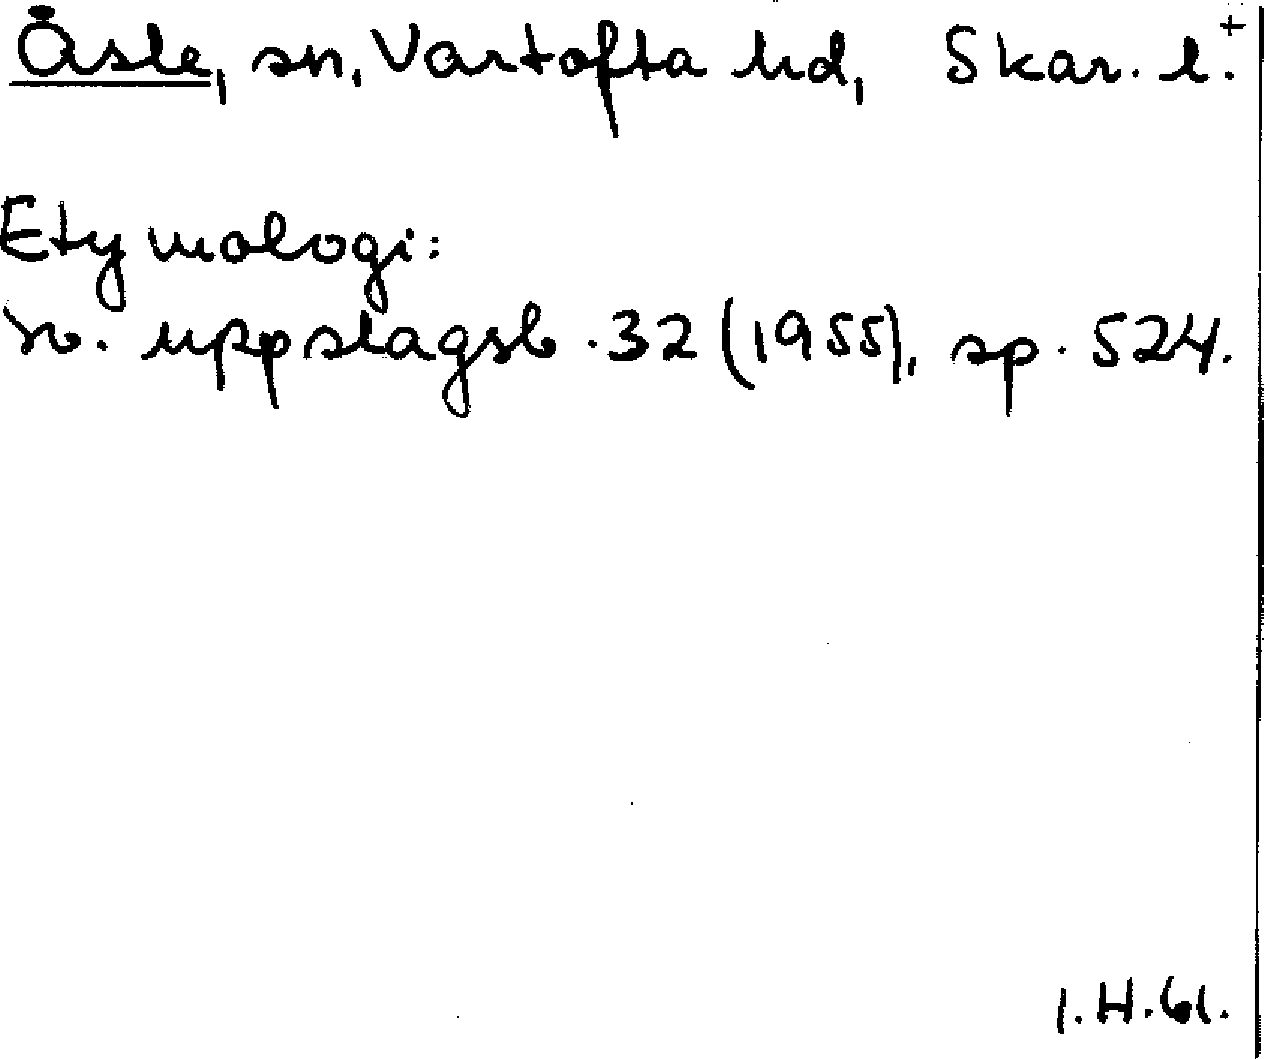 Åsle, sn, Vartofta hd, Skar. l.+
Etymologi:
Sv. uppslagsb. 32 (1955), sp. 524.
I.H.61.